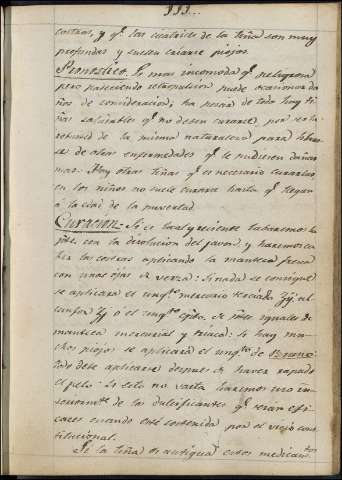 111..
costras, y qe. las cicatrices de la tiña son muy
profundas y suelen criarse piojos.
Pronostico. Es mas incomoda qe. peligrosa
pero padeciendo retropulsion puede ocasionar da
ños de consideracion; ha pesar de todo hay ti
ñas saludables qe. no deben curarse por ser la
de la misma naturaleza para libra
se de otras enfermedades qe. le pudieran dañar
mas. Hay otras tiñas qe. es necesario curarlas,
en los niños no suele curarse hasta qe. llegan
á la edad de la puvertad.
Curacion= Si es local y reciente labaremos la
pte. con la disolucion del javon, y haremos ca
her las costras aplicando la manteca fresca
con unas ojas de verza: Si nada se consigue
se aplicará el ungto. mercurio terciado
canfor ó el ungto. de ptes. yguales de
manteca mercurial y triaca: si hay mu
chos piojos se aplicará el ungto. de
debe aplicarse despues de haver rapado
el pelo: Si esto no vasta haremos uso in
teriormte. de los dulcificantes qe. serán efi
caces cuando esté sostenida por el vicio cons
titucional.
Si la tiña es antigua estos medicamtos.